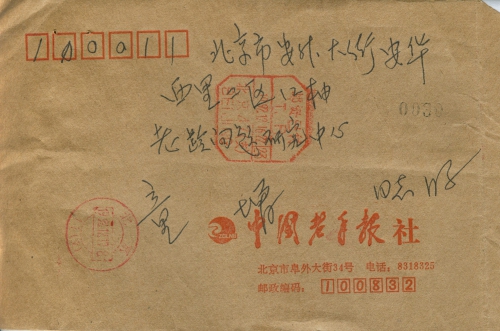 100011 北京市安外大街安华
西里一区12
0030
老龄问题研究中心
同志收
中国老年报社
北京市阜外大街34号 电话:8318325
邮政编码:100832